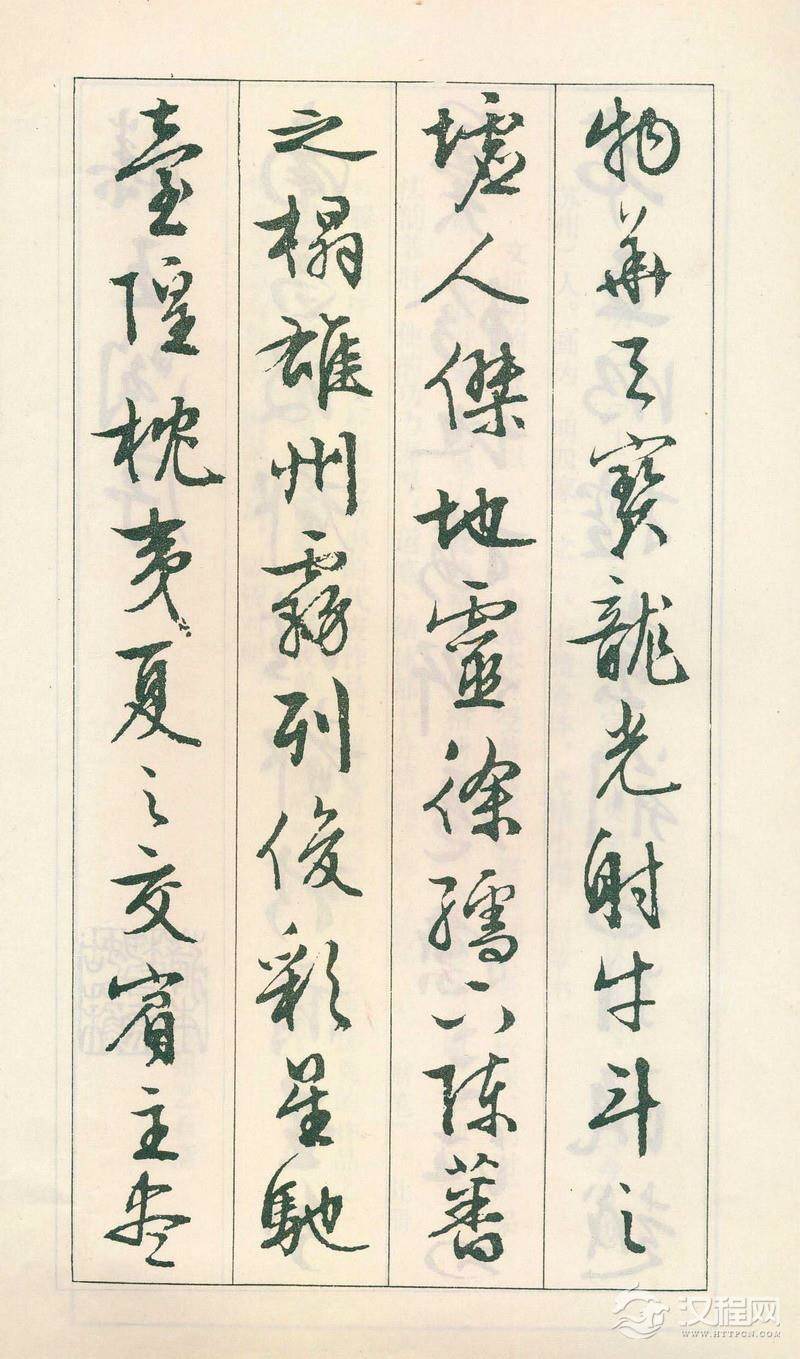 物華天寶龍光射牛斗之
墟人傑地靈徐孺下陳蕃
之榻雄州霧列俊彩星馳
臺隍枕夷夏之交賓主盡
汉程网
WWW.HTTPCN.COM